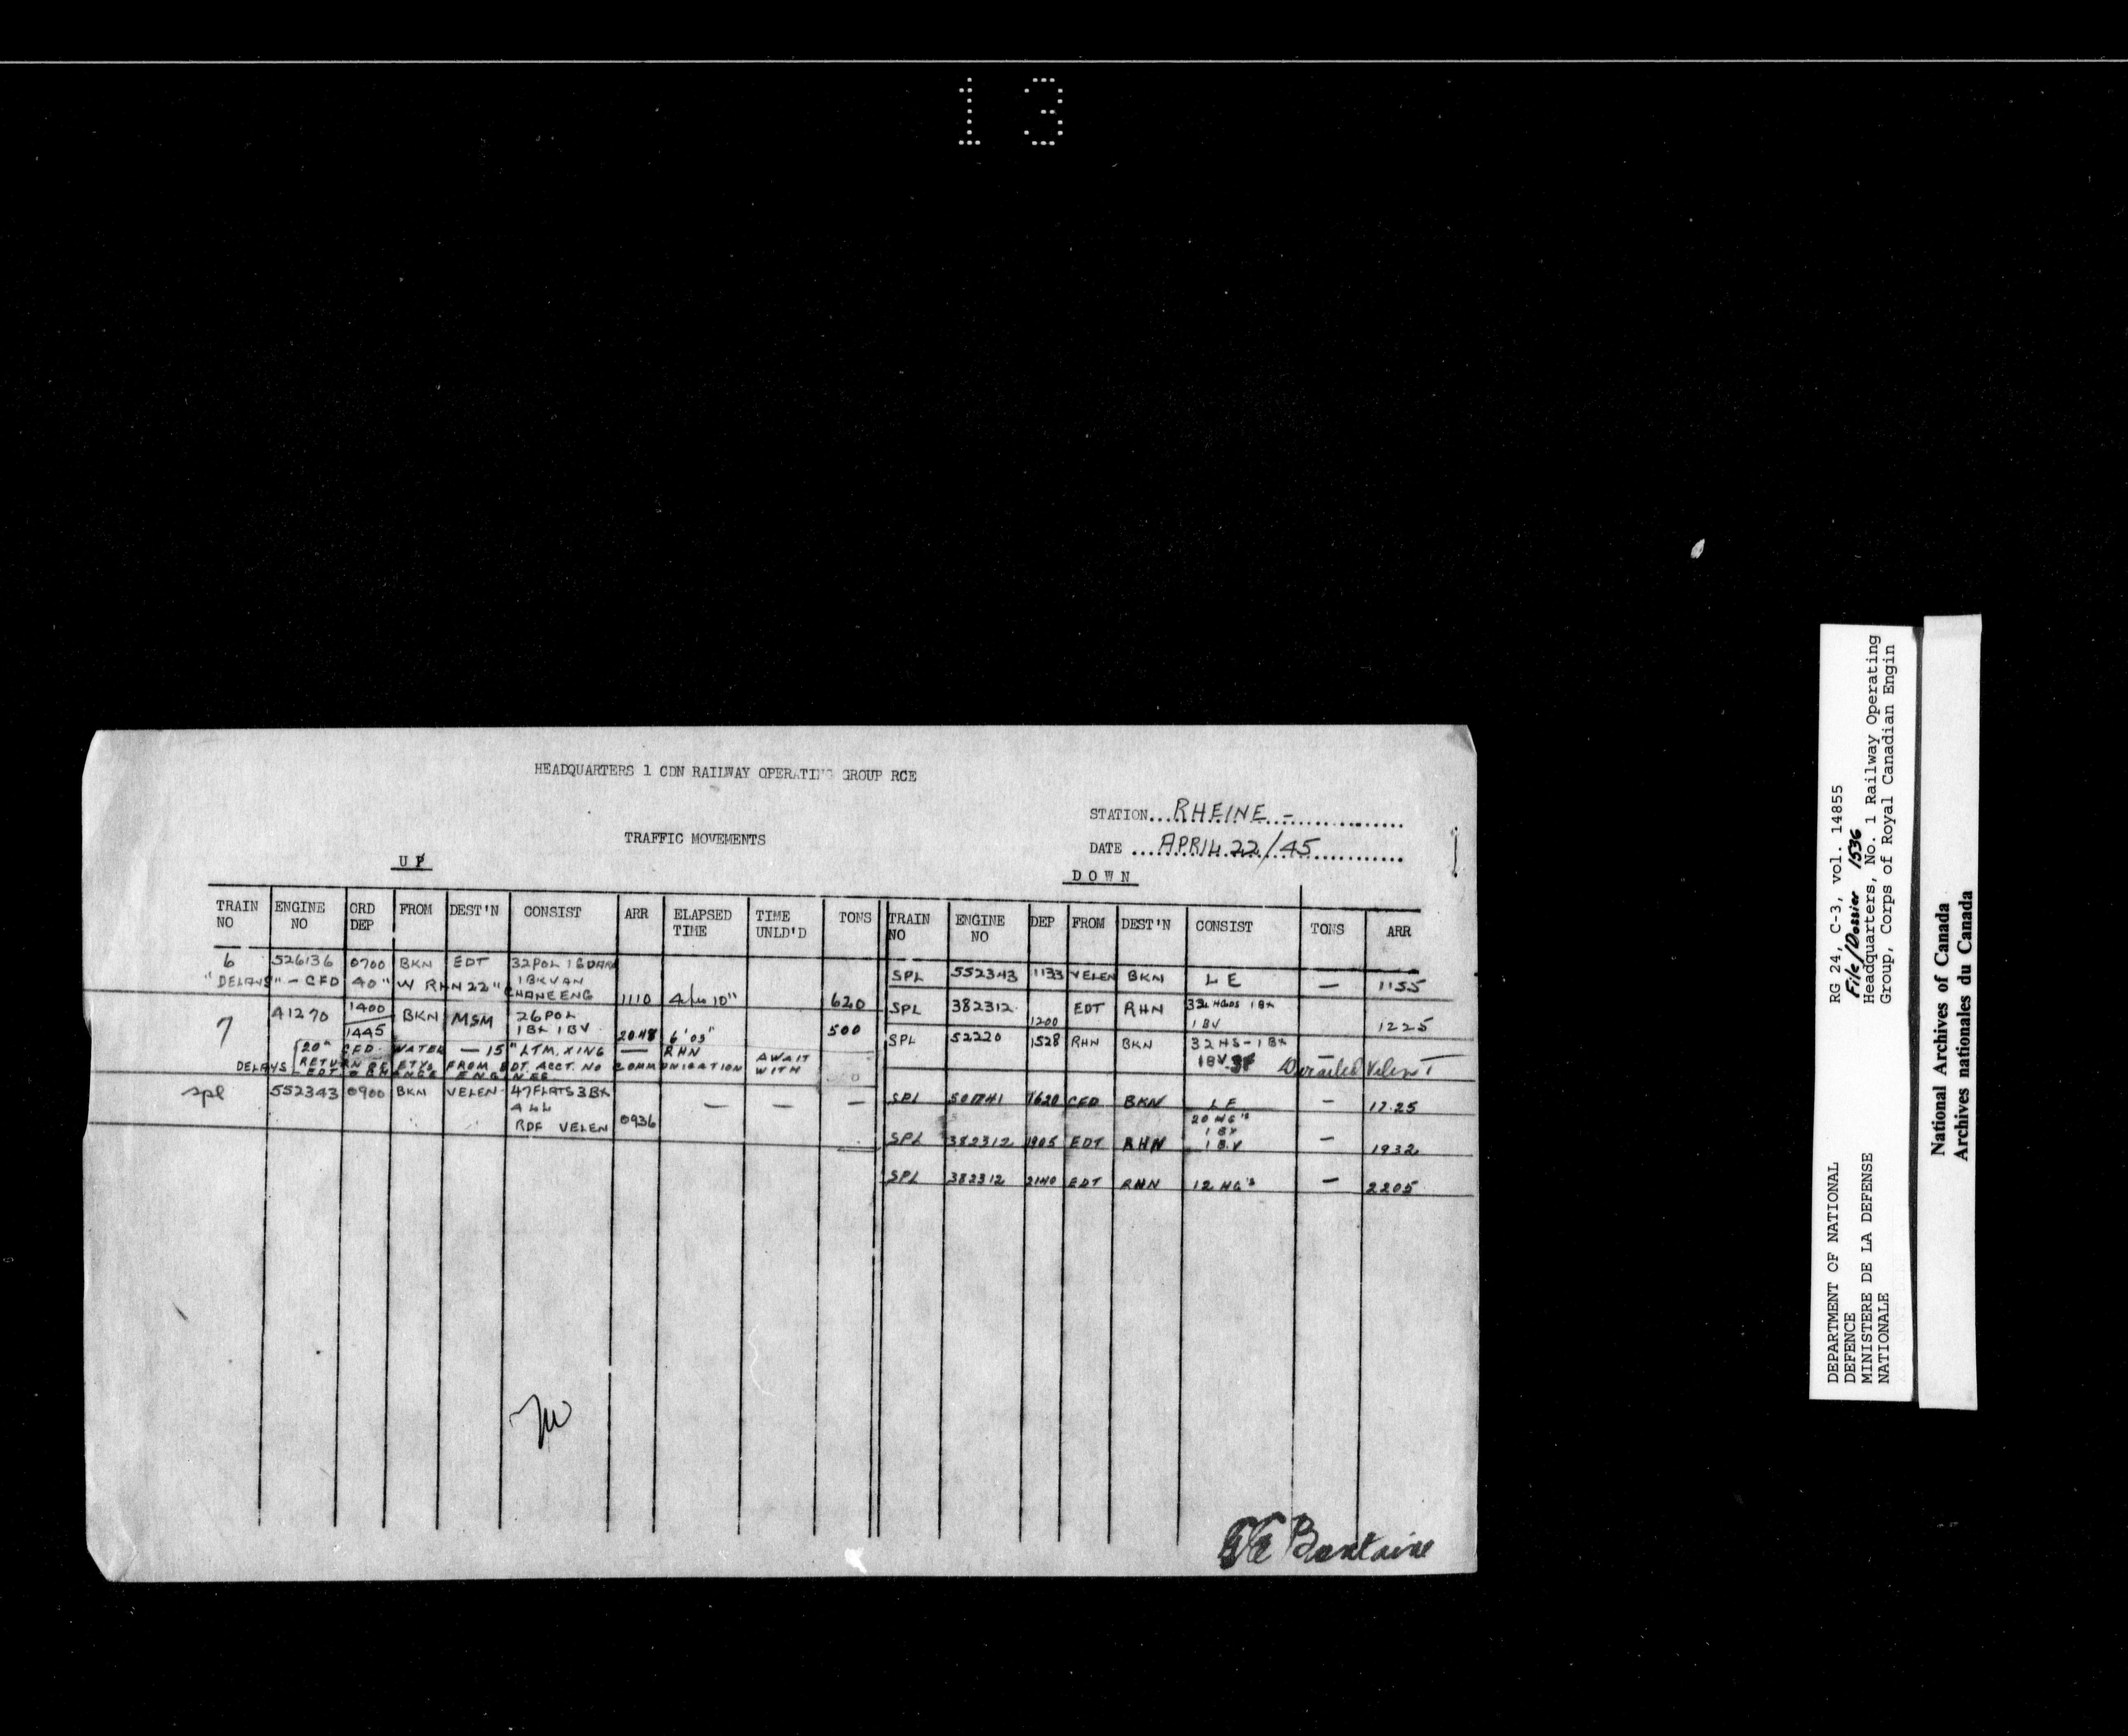 13
HEADQUARTERS 1 CDN RAILWAY OPERATING GROUP RCE
STATION...RHEINE-
TRAFFIC MOVEMENTS
DATE ...APRIL 22/45
UP
DOWN
TRAIN NO ENGINE NO ORD DEP FROM DEST'N CONSIST ARR ELAPSED TIME TIME UNLD'D TONS TRAIN NO ENGINE NO DEP FROM DEST'N CONSIST TONS ARR
6 526136 0700 BKN EDT 32 POL 1 GUARD
"DELAYS" - CFD 40" W RHN 22" 1 BKVAN
CHANE ENG 1110 4 hrs 10" 620
7 41270 1400 BKN MSM 26 POL
1445 1BX 1BV 2048 6'03" 500
DELAYS 20" CFD WATER — 15" LTM. XING — RHN
RETURN OF ETYS FROM EDT. ACCT. NO COMMUNICATION WITH
EDT ENG AWAIT
spl 552343 0900 BKN VELEN 47 FLATS 3 BX — — —
ALL
RDF VELEN 0936
SPL 552343 1133 VELEN BKN L E — 1155
SPL 382312 1200 EDT RHN 1BX
1BV 1225
SPL 52220 1528 RHN BKN 32 HS - 1BX
1BV Derailed Velen T
SPL 1620 CFD BKN L E - 1725
SPL 382312 1905 EDT RHN 20 HG's
1 BX
1 BV - 1932
SPL 382312 2140 EDT RHN 12 HG's - 2205
Bontaine
RG 24, C-3, vol. 14855
File/Dossier 1536
Headquarters, No. 1 Railway Operating
Group, Corps of Royal Canadian Engin
DEPARTMENT OF NATIONAL
DEFENCE
MINISTERE DE LA DEFENSE
NATIONALE
National Archives of Canada
Archives nationales du Canada